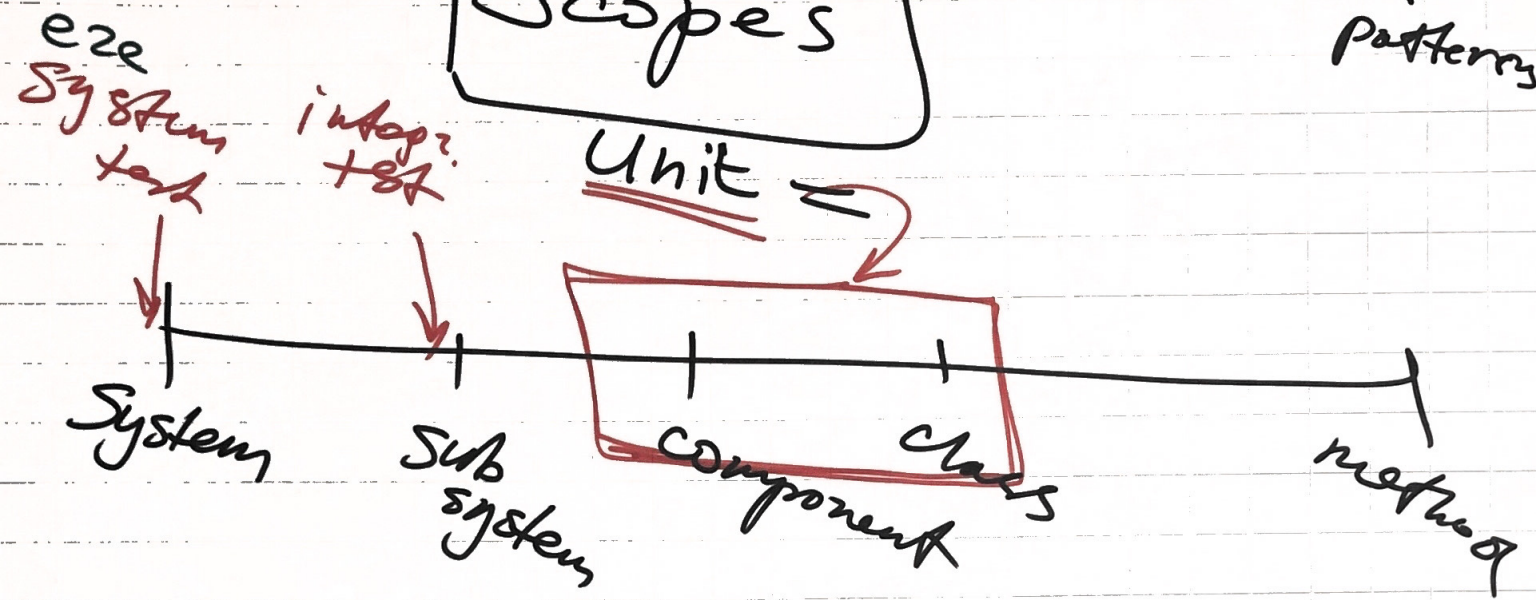 Scopes
patterns
e2e
System
test
integr.
test
Unit =
System
Sub
system
component
class
method